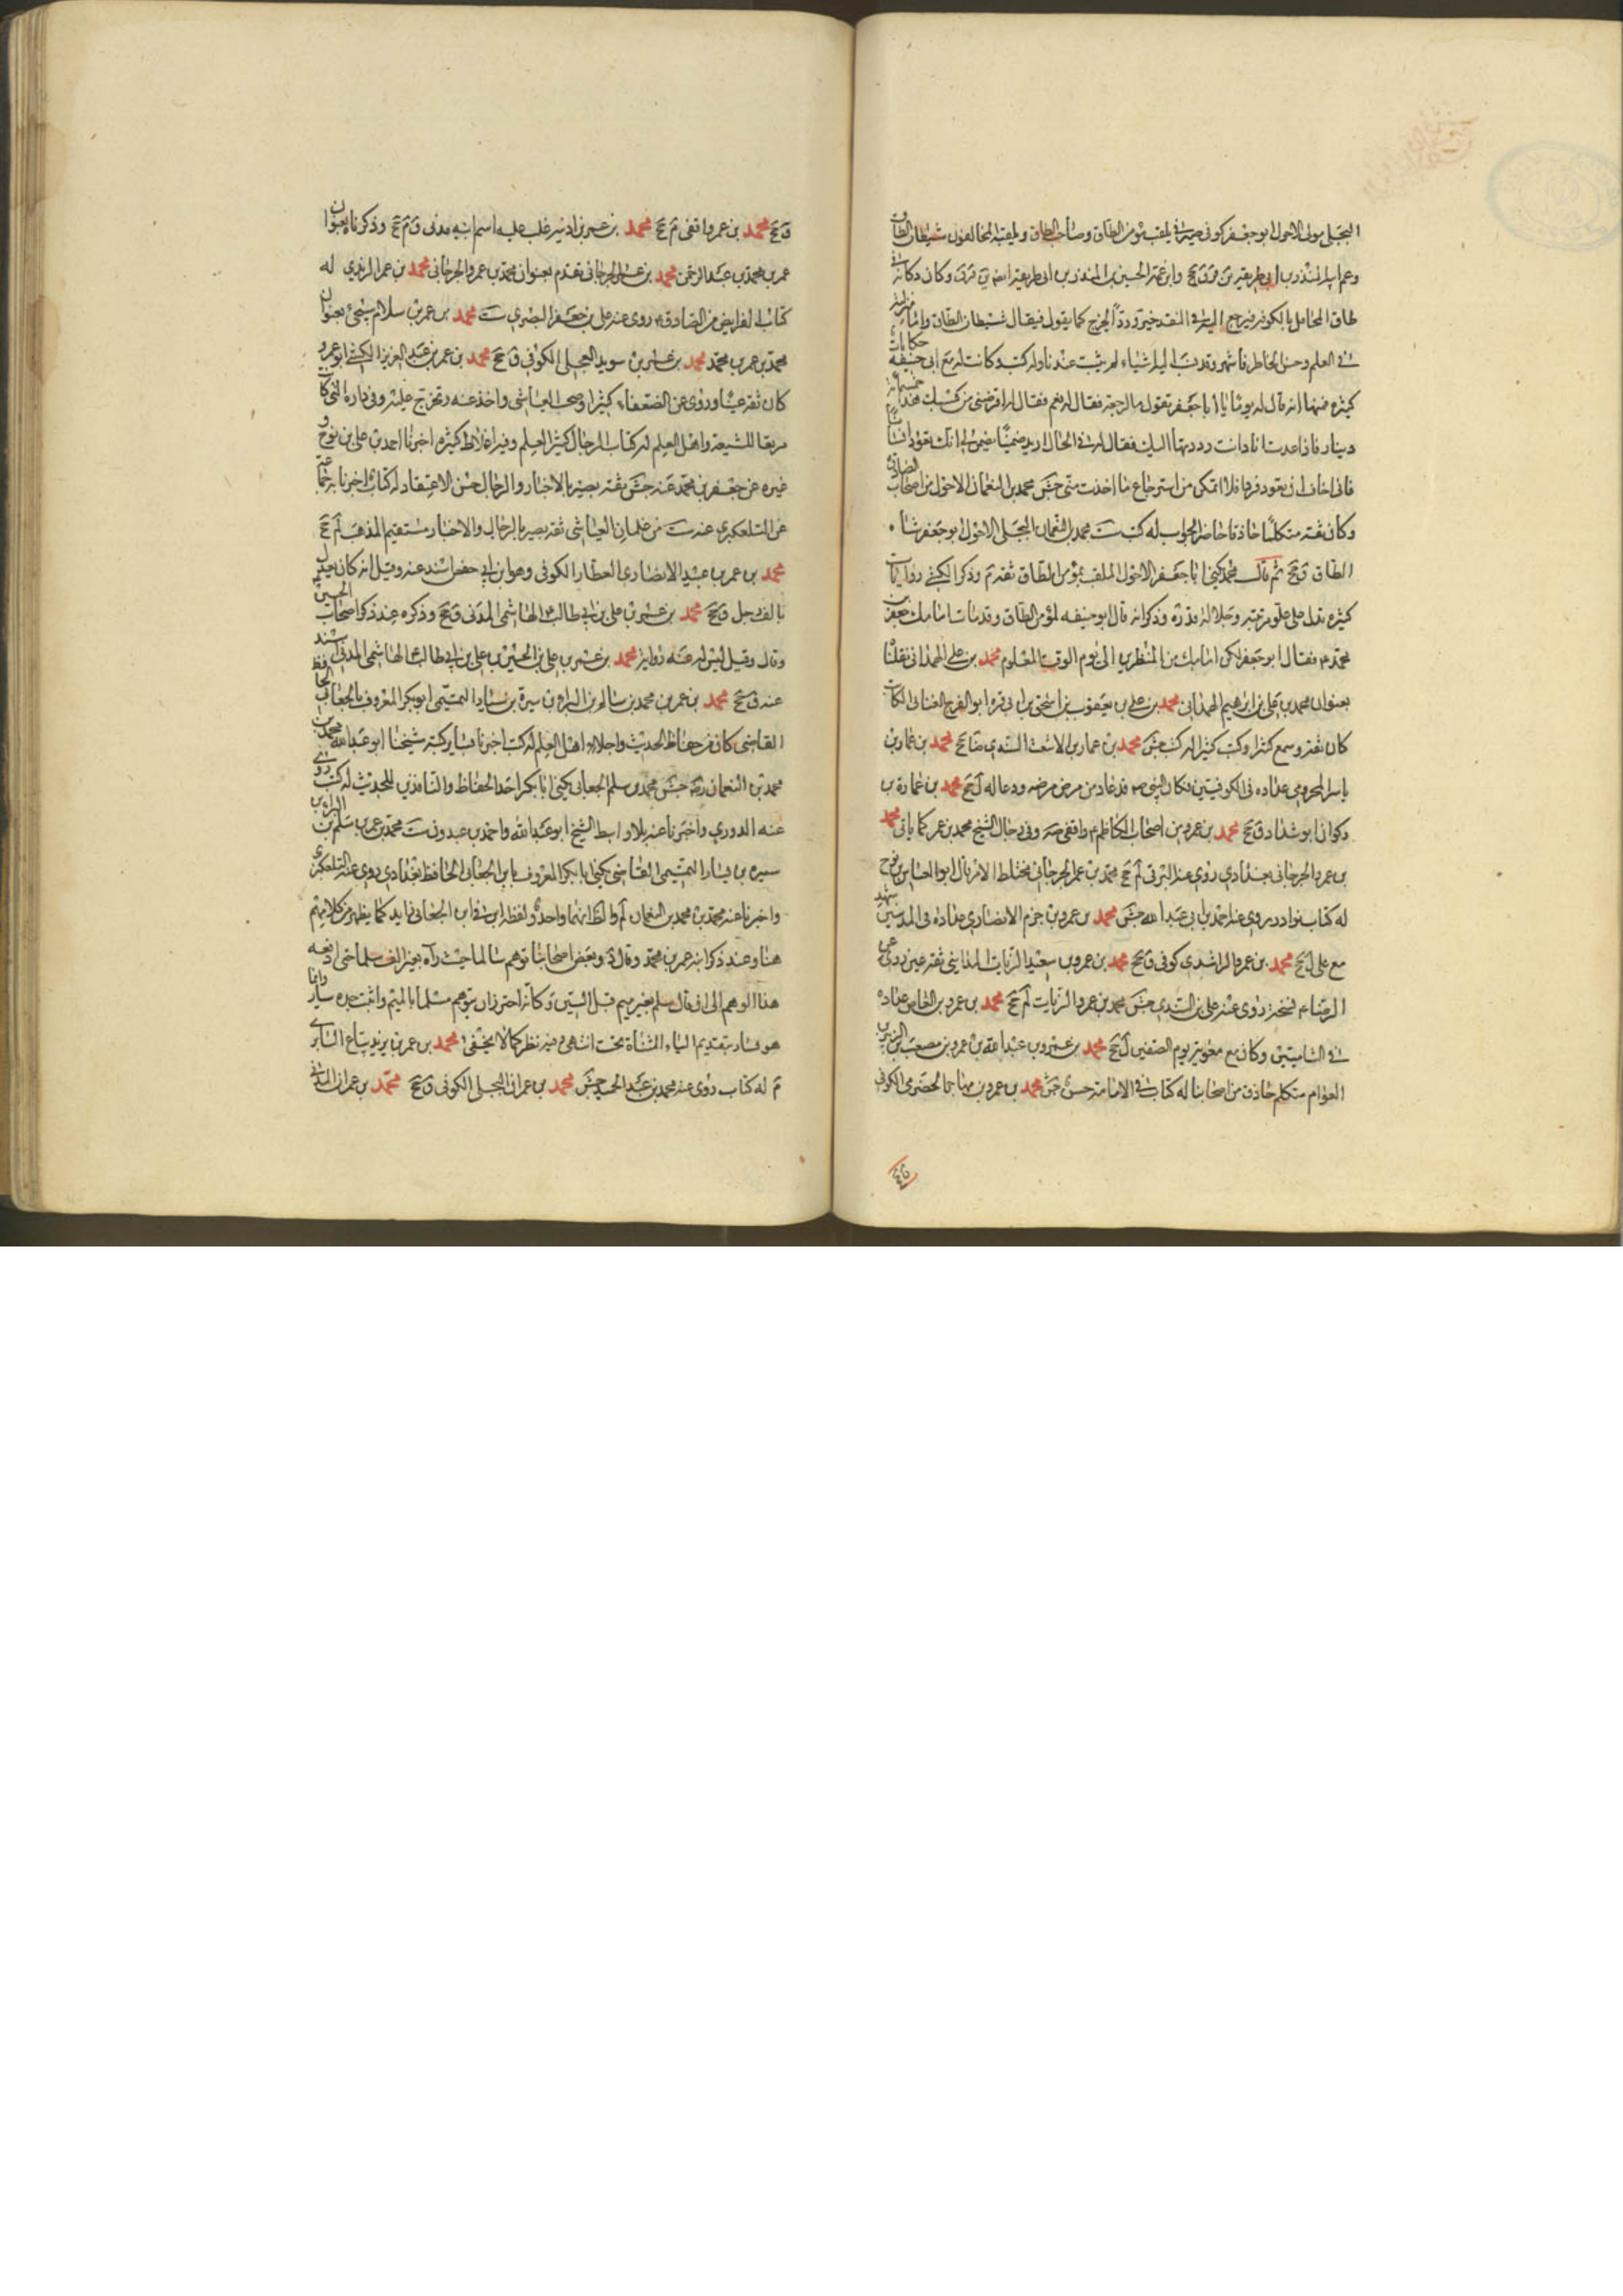 البجلي مولى الاحول ابو جعفر كوفي صيرفي يلقب مؤمن الطاق وصاحب الطاق ويلقبه المخالفون شيطان الطاق
وعم ابيه المنذر بن ابي طريفة من ين ق ق جخ وابن عمه الحسين بن المنذر بن ابي طريفة ايضا ين قر ق وكان دكانه في
طاق المحامل بالكوفة فيرجع اليه في النقد فيرد ردا يخرج كما يقول فيقال شيطان الطاق واما منزلته
في العلم وحسن الخاطر فاشهر وقد نسب اليه اشياء لم يثبت عندنا وله كتب وكانت له مع ابي حنيفة حكايات
كثيرة فمنها انه قال له يوما يا ابا جعفر تقول بالرجعة فقال له نعم فقال له اقرضني من كيسك هذا خمسمائة
دينار فاذا عدت انا وانت رددتها اليك فقال له في الحال اريد ضمينا يضمن لي انك تعود انسانا
فاني اخاف ان تعود قردا فلا اتمكن من استرجاع ما اخذت مني جش محمد بن النعمان الاحول من اصحاب الصادق
وكان ثقة متكلما حاذقا حاضر الجواب له كتب ست محمد بن النعمان البجلي الاحول ابو جعفر شاه
الطاق ق جخ ثم قال محمد يكنى ابا جعفر الاحول الملقب بمؤمن الطاق ثقة م وذكر الكشي روايات
كثيرة تدل على علو مرتبته وجلالة قدره وذكر انه قال ابو حنيفه لمؤمن الطاق وقد مات امامك جعفر بن
محمد ع فقال ابو جعفر لكن امامك من المنظرين الى يوم الوقت المعلوم محمد بن علي الهمداني نقلنا
بعنوان محمد بن علي بن ابرهيم الهمداني محمد بن علي بن يعقوب بن اسحق بن ابي قره ابو الفرج القناني الكاتب
كان ثقة وسمع كثيرا وكتب كثيرا له كتب جش محمد بن عمار بن الاشعث السندي ضا جخ محمد بن عمار بن
ياسر المخزومي عداده في الكوفيين فكان النبي ص قد عاده من مرض مرضه ودعا له ل جخ محمد بن عمارة بن
ذكوان ابو شداد ق جخ محمد بن عمرو من اصحاب الكاظم ع واقفي صه وفي رجال الشيخ محمد بن عمر كما ياتي محمد
بن عمرو الجرجاني بغدادي روى عنه البرقي لم جخ محمد بن عمر الجرجاني مختلط الامر قال ابو العباس بن نوح
له كتاب نوادر روى عنه احمد بن ابي عبد الله جش محمد بن عمرو بن حزم الانصاري عداده في المدنيين شهد
مع علي ل جخ محمد بن عمرو الراشدي كوفي ق جخ محمد بن عمرو بن سعيد الزيات المدايني ثقة عين روى عن
الرضا ع نسخة روى عنه علي بن السندي جش محمد بن عمرو الزيات لم جخ محمد بن عمرو بن العاص عداده
في الشاميين وكان مع معوية يوم الصفين ل جخ محمد بن عمرو بن عبد الله بن عمرو بن مصعب بن الزبير بن
العوام متكلم حاذق من اصحابنا له كتاب في الامامة حسن جش محمد بن عمرو بن مهاجر الحضرمي الكوفي
ق جخ محمد بن عمر واقفي م جخ محمد بن عمر بن اذينه غلب عليه اسم ابيه مدني ق م جخ وذكرناه بعنوان
عمر بن محمد بن عبد الرحمن محمد بن عمر الجرجاني تقدم بعنوان محمد بن عمرو الجرجاني محمد بن عمر الزيدي له
كتاب الفرايض عن الصادق ع روى عنه علي بن جعفر البصري ست محمد بن عمر بن سلام سيجئ بعنوان
محمد بن عمر بن محمد محمد بن عمر بن سويد العجلي الكوفي ق جخ محمد بن عمر بن عبد العزيز الكشي ابو عمرو
كان ثقة عينا وروى عن الضعفاء كثيرا وصحب العياشي واخذ عنه وتخرج عليه وفي داره التي كانت
مرتعا للشيعة واهل العلم له كتاب الرجال كثير العلم وفيه اغلاط كثيرة اخبرنا احمد بن علي بن نوح و
غيره عن جعفر بن محمد عنه جش ثقة بصير بالاخبار والرجال حسن الاعتقاد له كتاب اخبرنا به جماعة
عن التلعكبري عنه ست من غلمان العياشي ثقة بصير بالرجال والاخبار مستقيم المذهب لم جخ
محمد بن عمر بن عبيد الانصاري العطار الكوفي وهو ابن ابي حفص اسند عنه وقيل انه كان يعدل
بالف رجل ق جخ محمد بن عمر بن علي بن ابي طالب ع الهاشمي المدني ق جخ وذكره عند ذكر اصحاب الحسين
وقال وقيل ليس له عنه رواية محمد بن عمر بن علي بن الحسين بن علي بن ابي طالب ع الهاشمي المدني اسند
عنه ق جخ محمد بن عمر بن محمد بن سالم بن البراء بن سبرة بن سيار التميمي ابو بكر المعروف بالجعابي الحافظ
القاضي كان من حفاظ الحديث واجلاء اهل العلم له كتب اخبرنا بساير كتبه شيخنا ابو عبد الله محمد بن
محمد بن النعمان ره جش محمد بن سلم الجعابي يكنى ابا بكر احد الحفاظ والناقدين للحديث له كتب روى
عنه الدوري واخبرنا عنه بلا واسط الشيخ ابو عبد الله واحمد بن عبدون ست محمد بن عمر بن سلم بن البراء بن
سبره بن يسار التميمي القاضي يكنى ابا بكر المعروف بابن الجعابي الحافظ بغدادي روى عنه التلعكبري
واخبرنا عنه محمد بن محمد بن النعمان لم والظ انهما واحد ولفظة ابن في ابن الجعابي زايد كما يظهر من كلامهم
هنا وعند ذكر ابيه عمر بن محمد وقال د وبعض اصحابنا توهم سالما حيث رآه بغير الف سلما حتى اوقعه
هذا الوهم الى ان قال سلم بغير ميم قبل السين وكانه احترز ان يتوهم مسلما بالميم واثبت جده سيار وانما
هو يسار بتقديم الياء المثناة تحت انتهى وفيه نظر كما لا يخفى محمد بن عمر بن يزيد بياع السابري
م له كتاب روى عنه محمد بن عبد الحميد جش محمد بن عمران البجلي الكوفي ق جخ محمد بن عمران المدني